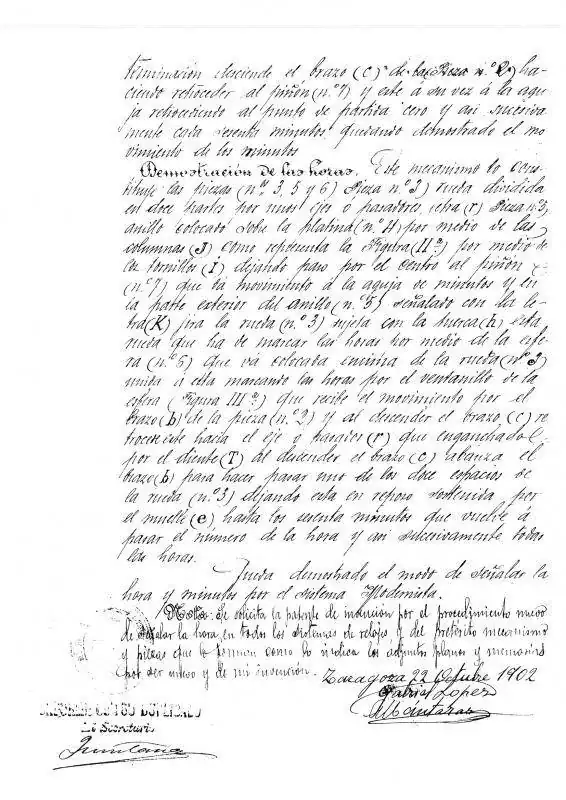 terminación desciende el brazo (c) de la Pieza n.º 2) ha-
ciendo retroceder al piñón (n.º 7) y este á su vez á la agu-
ja retrocediendo al punto de partida cero y asi sucesiva
mente cada sesenta minutos quedando demostrado el mo
vimiento de los minutos
Demostración de las horas. Este mecanismo lo cons
tituye las piezas (n.os 3, 5 y 6) Pieza n.º 3) rueda dividida
en doce partes por unos ejes ó pasadores letra (r) Pieza n.º 5,
anillo colocado sobre la platina (n.º 4) por medio de las
columnas (J) como representa la Figura (II ª) por medio de
los tornillos (i) dejando paso por el centro al piñón
(n.º 7) que dá movimiento á la aguja de minutos y en
la parte exterior del anillo (n.º 5) señalado con la le-
tra (K) jira la rueda (n.º 3) sujeta con la tuerca (h) esta
rueda que ha de marcar las horas por medio de la esfe-
ra (n.º 6) que vá colocada encima de la rueda (n.º 3)
unida á esta marcando las horas por el ventanillo de la
esfera (Figura III ª) que recibe el movimiento por el
brazo (b) de la pieza (n.º 2) y al descender el brazo (c) re
trocede este hacia el eje ó pasador (r) que enganchado
por el diente (T) al descender el brazo (c) abanza el
brazo (b) para hacer pasar uno de los doce espacios de
la rueda (n.º 3) dejando esta en reposo sostenida por
el muelle (e) hasta los sesenta minutos que vuelve á
pasar el número de la hora y asi sucesivamente todas
las horas.
Queda demostrado el modo de señalar la
hora y minutos por el sistema Modernista.
Nota: Se solicita la patente de invención por el procedimiento nuevo
de señalar la hora en todos los sistemas de relojes y del pretérito mecanismo
y piezas que lo forman como lo indica los adjuntos planos y memorias
por ser nuevo y de mi invención. Zaragoza 22 Octubre 1902
Gabriel Lopez
Alcántaras
El Secretario
Quintana